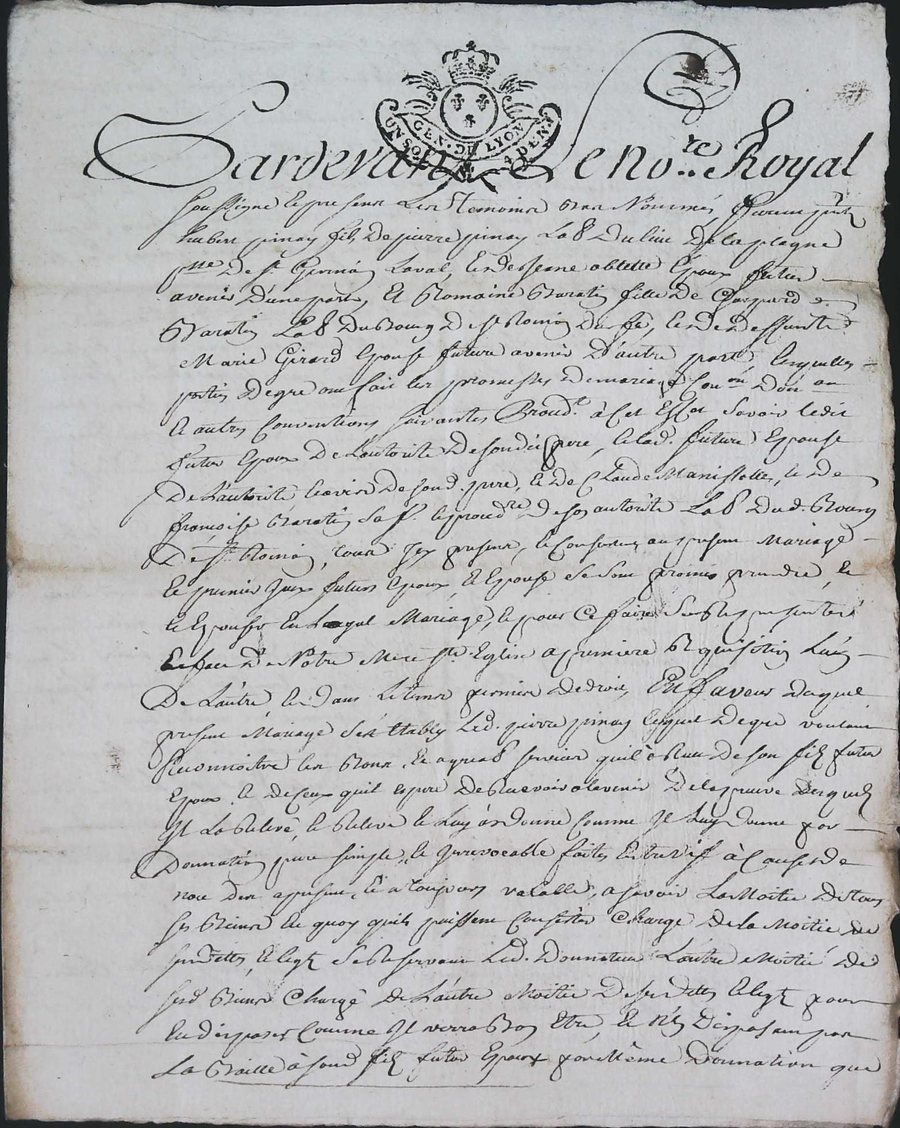 GEN. DE LYON
UN SOL 4 DEN.
Pardevant Le no.re Royal
soussigné et presens Les temoins Bas Nommés, furent pnts
hubert pinay fils De pierre pinay La8 Du lieu De la plagne
psse De st Germain Laval, et de Epoux futur
avenir D'une part, Et Romaine Baratin fille De Gaspard
Baratin La8 Du Bourg De st Romain et de deffunte
Marie Girard Epouse future avenir D'autre part Lesquelles
parties De gré ont fait les promesses De mariage
et autres Conventions suivantes à Cet Effet savoir ledit
futur Epoux De L'autorité De sond. pere, et lad. future Epouse
De L'autorité et avis De sond. pere, et De Claude Manissolle, et De
françoise Baratin sa f. De son autorité La8 Dud. Bourg
De st Romain, tous Jcy presens, et Consentens au present Mariage
Et premier Yceux futurs Epoux et Epouse se sont promis prendre, et
et Epouser En Loyal Mariage, et pour Ce faire se Representer
En face De Notre Mere ste Eglise a premiere Requisition L'un
De L'autre et Dans Le tems permis De droit, En faveur Duquel
present Mariage s'est Etably Led. pierre pinay Lequel De gré voulant
Reconnoitre les Bons et agreab services qu'il a Recu De son fils futur
Epoux et De Ceux quil espere De Recevoir a l'avenir De la preuve Desquels
Jl La Relevé, et Releve et Luy a Donné Comme Jl Luy Donne par
Donnation pure simple, et Jrrevocable faite Entre vifs à Cause De
noces Des a present, et a toujours valable, a savoir La Moitié De tous
ses Biens En quoy quils puissent Consister Chargé De la Moitié de
ses dettes, et legt se Reservant Led. Donnateur L'autre Moitié De
sesd. Biens Chargé De L'autre Moitié De ses dettes et legt pour
En Disposer Comme Jl verra Bon Etre, Et N'en Disposant pas
La Baille à sond. fils futur Epoux par Même Donnation que